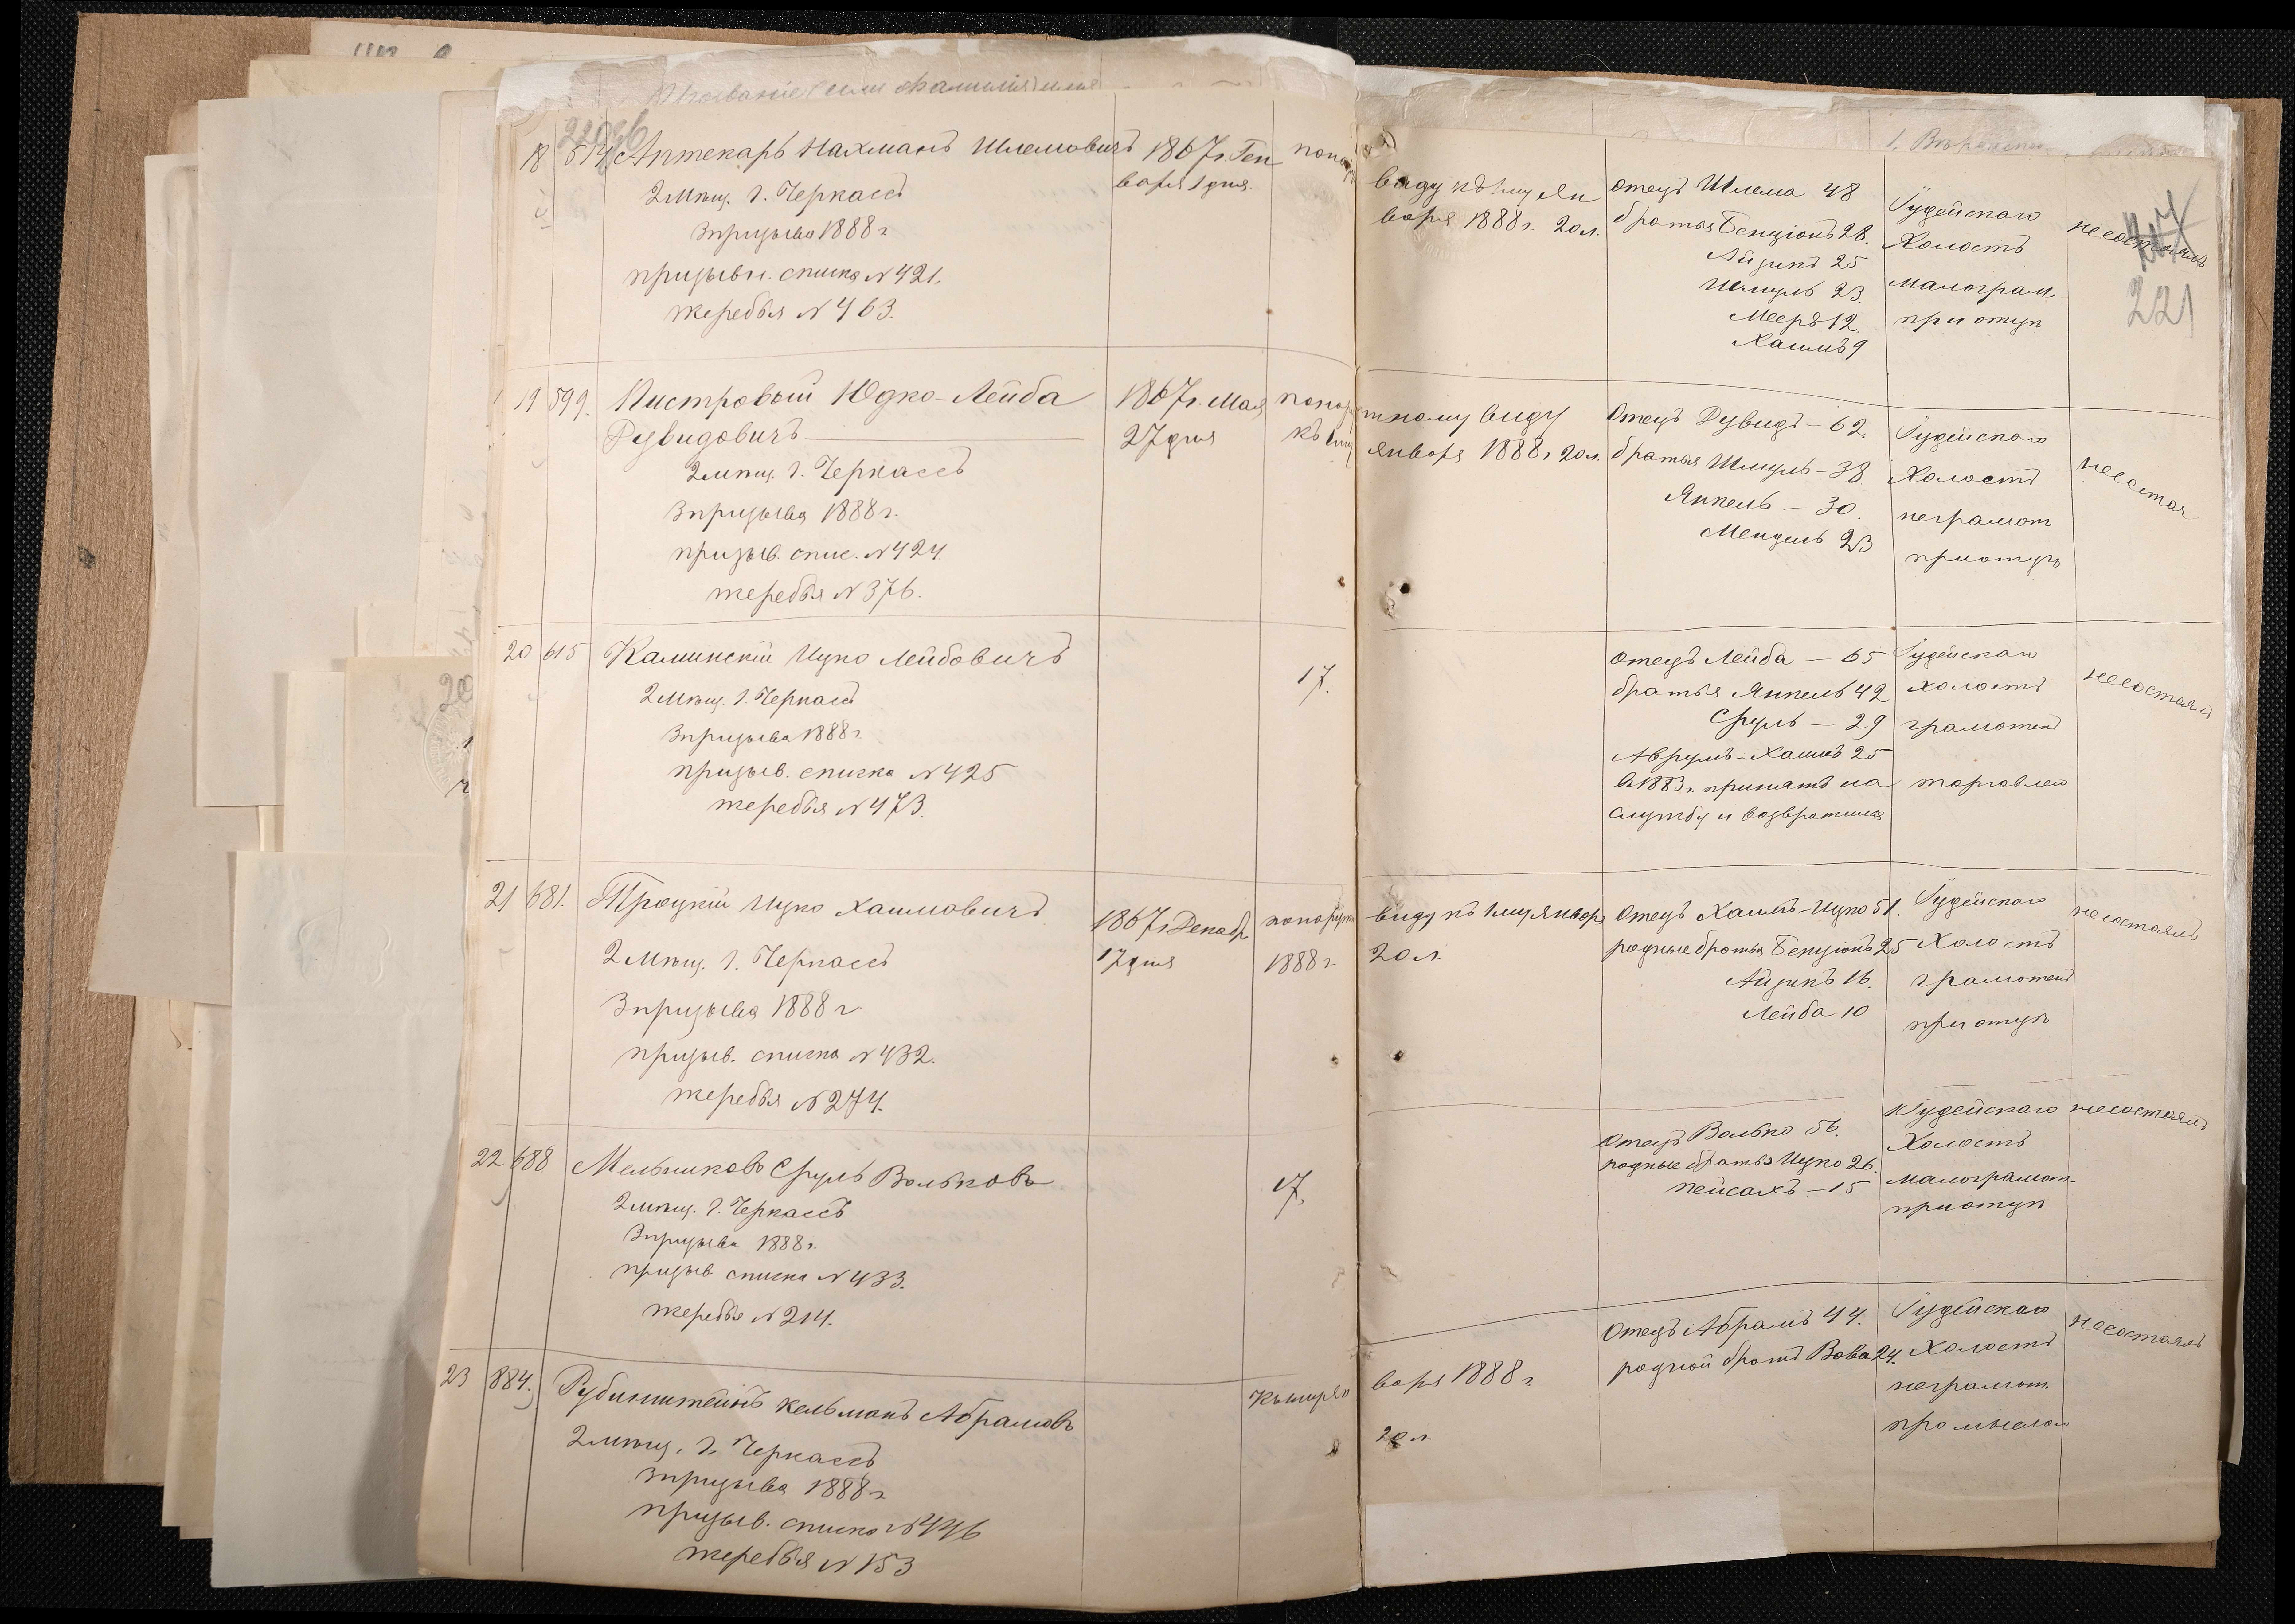 Прозваніе (или фамилія) имя
18 514 Аптекарь Нахманъ Шлемовичъ 1867 г. Ген
варя 1 дня
2 мѣщ. г. Черкассъ
3 призыва 1888 г
призывн. списка № 421.
жеребья № 463.
виду къ 1му Ян
варя 1888 г. 20 л.
отецъ Шлема 48
братья Бенціонъ 28.
Айзикъ 25
Шмуль 23.
Мееръ 12.
Хаимъ 9
Іудейскаго
Холостъ
малограм.
при отцѣ
несостоялъ
221
19 599. Пистровый Юдко-Лейба
Дувидовичъ
1867 г. Мая
27 дня
2 мѣщ. г. Черкассъ
3 призыва 1888 г.
призыв. спис. № 424
жеребья № 376.
тному виду
января 1888 г. 20 л.
Отецъ Дувидъ – 62.
братья Шмуль – 38.
Янкель – 30.
Мендель 23
Іудейскаго
Холостъ
неграмот
при отцѣ
несостоя
20 615 Каминскій Ицко Лейбовичъ
2 мѣщ. г. Черкассъ
3 призыва 1888 г.
призыв. списка № 425
жеребья № 473.
17.
отецъ Лейба – 65
братья Янкель 42
Сруль – 29
Аврумъ-Хаимъ 25
въ 1883 г. принятъ на
службу и возвратился
Іудейскаго
холостъ
грамотенъ
торговлею
несостоялъ
21 681. Троцкій Ицко Хаимовичъ
1867 г. Декабр
17 дня
1888 г.
2 мѣщ. г. Черкассъ
3 призыва 1888 г
призыв. списка № 432.
жеребья № 274.
виду къ 1му Января
20 л.
Отецъ Хаимъ-Ицко 51.
родные братья Бенціонъ 25
Айзикъ 16.
Лейба 10
Іудейскаго
Холостъ
грамотенъ
при отцѣ
несостоялъ
22 688 Мельниковъ Сруль Вольковъ
2 мѣщ. г. Черкассъ
3 призыва 1888 г.
призыв списка № 433.
жеребья № 214.
17.
Отецъ Волько 56.
родные братья Ицко 26.
Пейсахъ – 15
Іудейскаго
Холостъ
малограмот.
при отцѣ
несостоялъ
23 884. Рубинштейнъ Кельманъ Абрамовъ
2 мѣщ. г. Черкассъ
3 призыва 1888 г
призыв. списка № 446
жеребья № 153
варя 1888 г.
20 л.
Отецъ Абрамъ 44.
родной братъ Вова 24.
Іудейскаго
Холостъ
неграмот.
промысломъ
несостоялъ